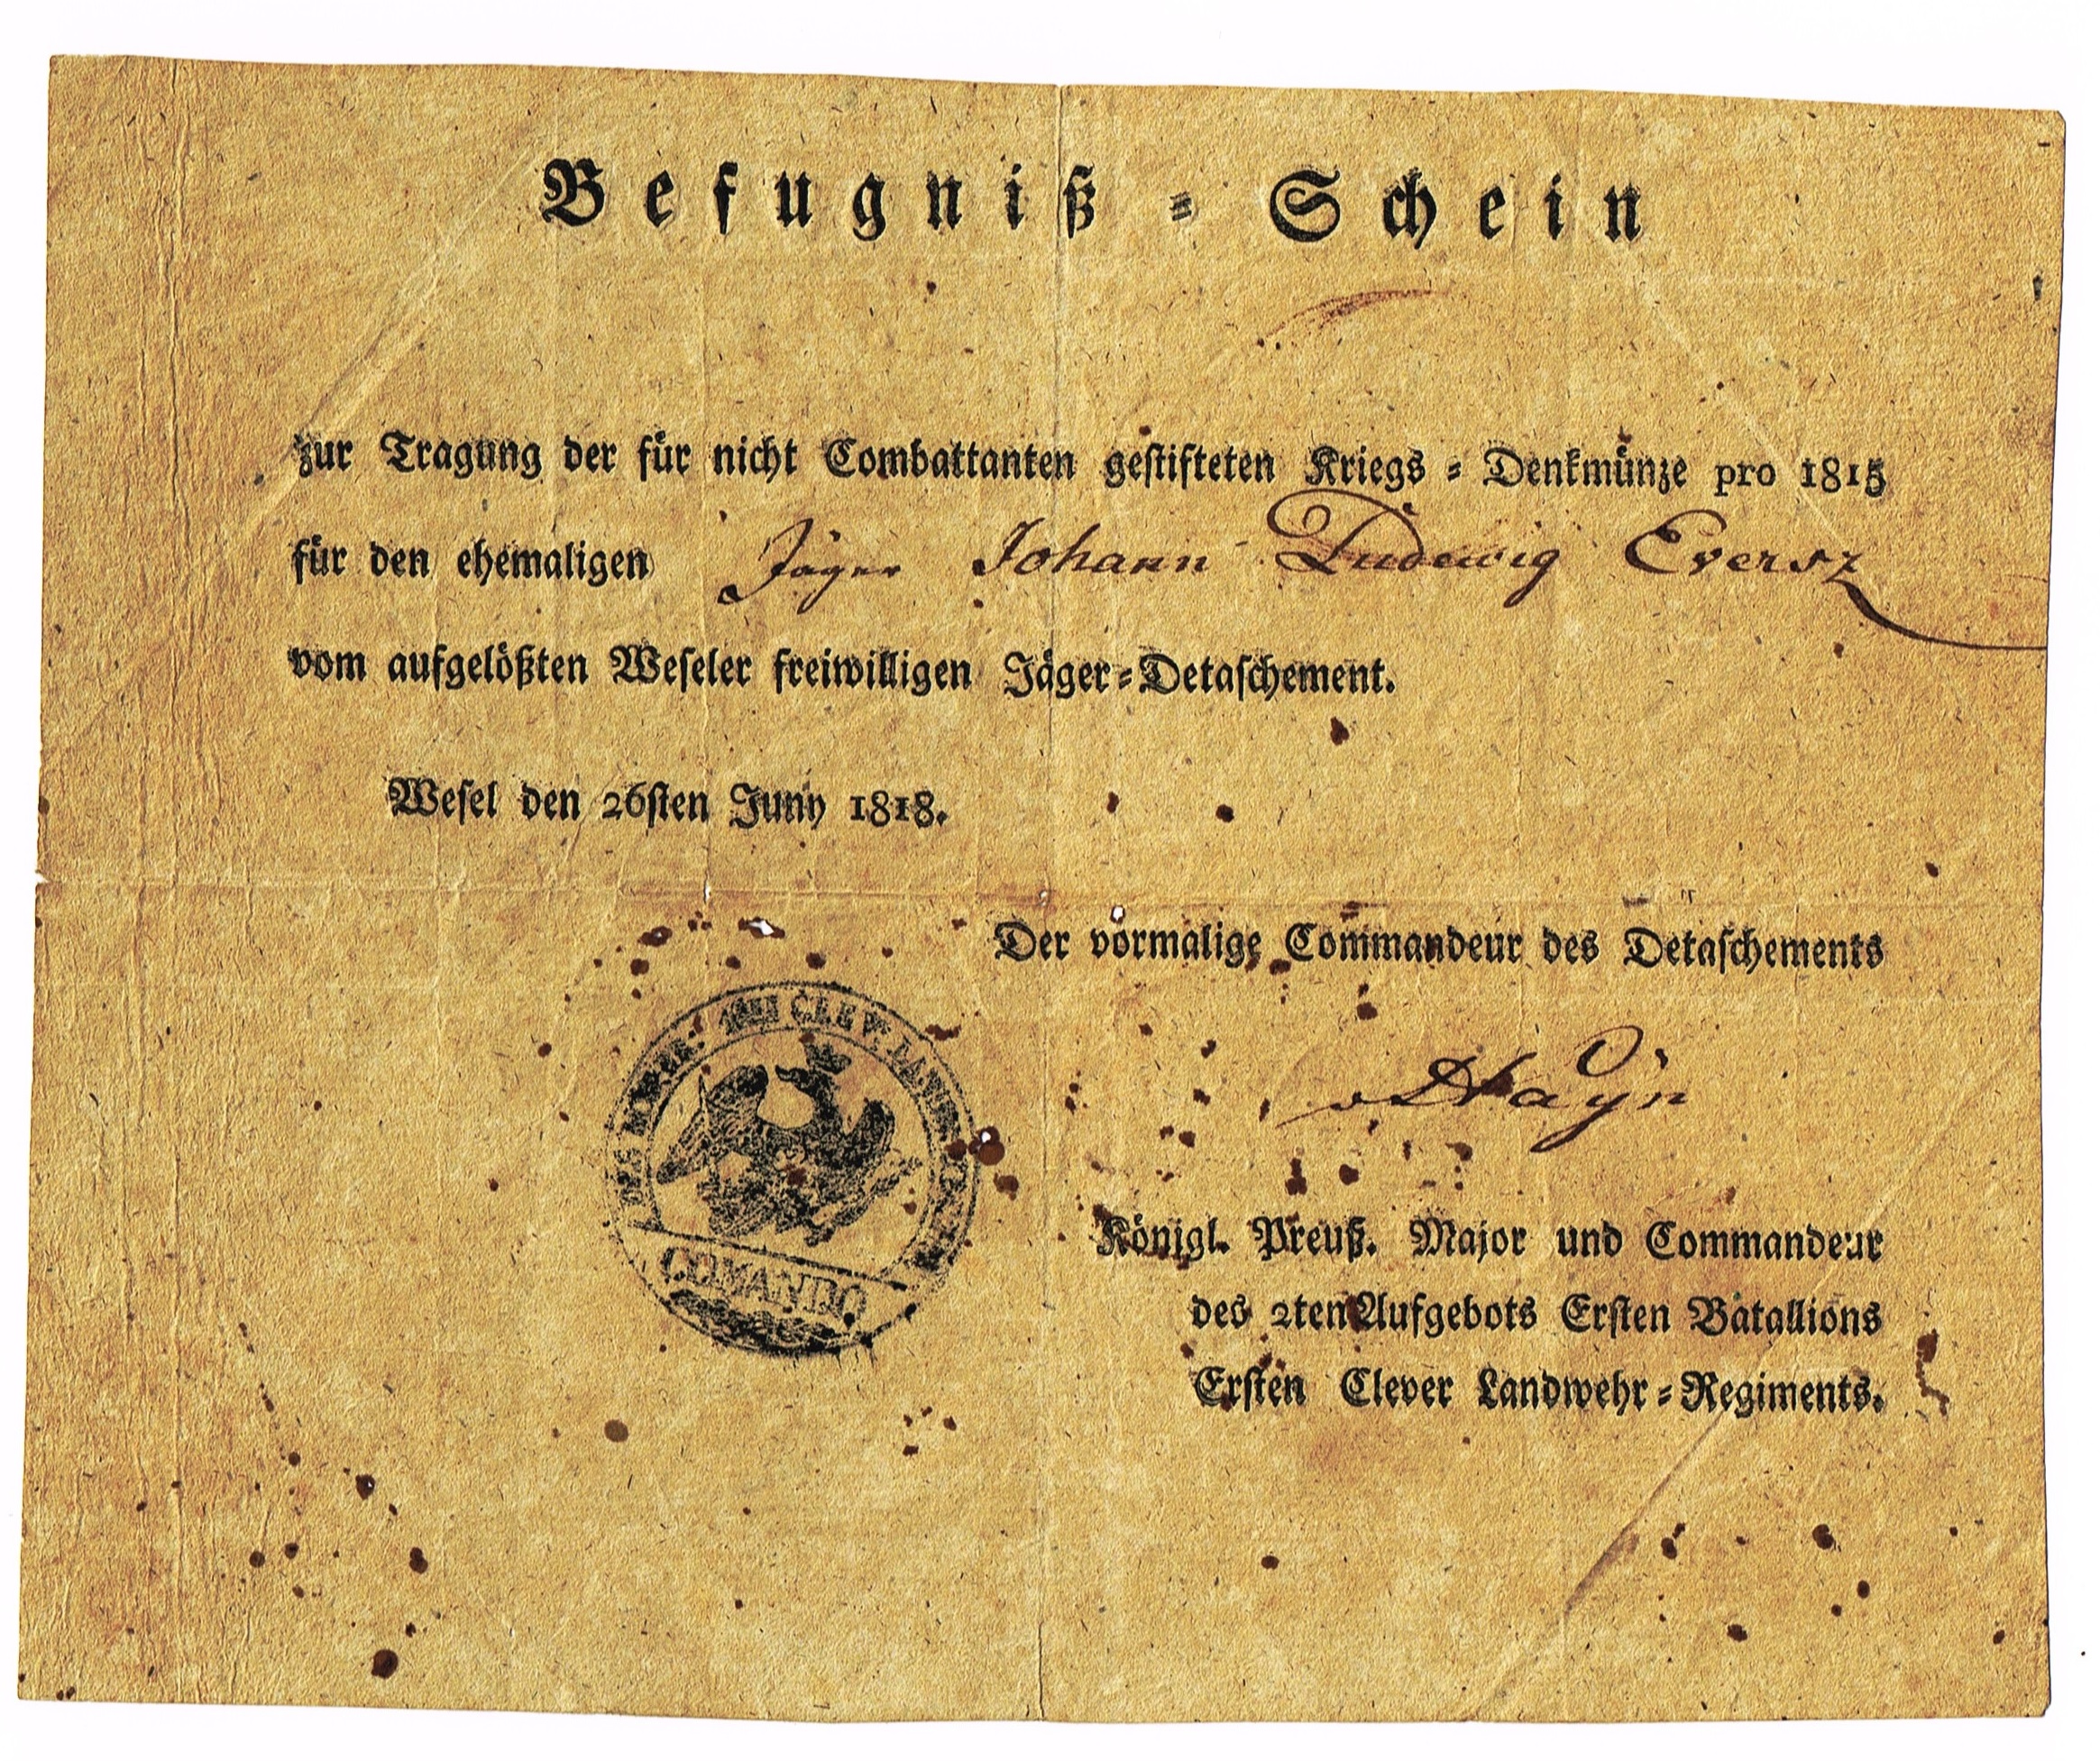 Befugniß-Schein
zur Tragung der für nicht Combattanten gestifteten Kriegs-Denkmünze pro 1815
für den ehemaligen Jäger Johann Ludewig Eversz
vom aufgelößten Weseler freiwilligen Jäger-Detaschement.
Wesel den 26sten Juny 1818.
Der vormalige Commandeur des Detaschements
CLEV. LANDW.
COMANDO
Königl. Preuß. Major und Commandeur
des 2ten Aufgebots Ersten Batallions
Ersten Clever Landwehr-Regiments.